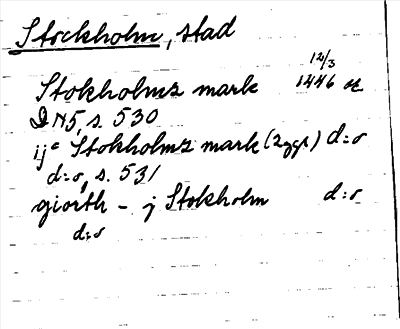 Stockholm, stad
Stokholms mark 12/3 1446 or.
DN5, s. 530
ijc Stokholms mark (2ggr) d:o
d:o, s. 531
giorth - j Stokholm d:o
d:o